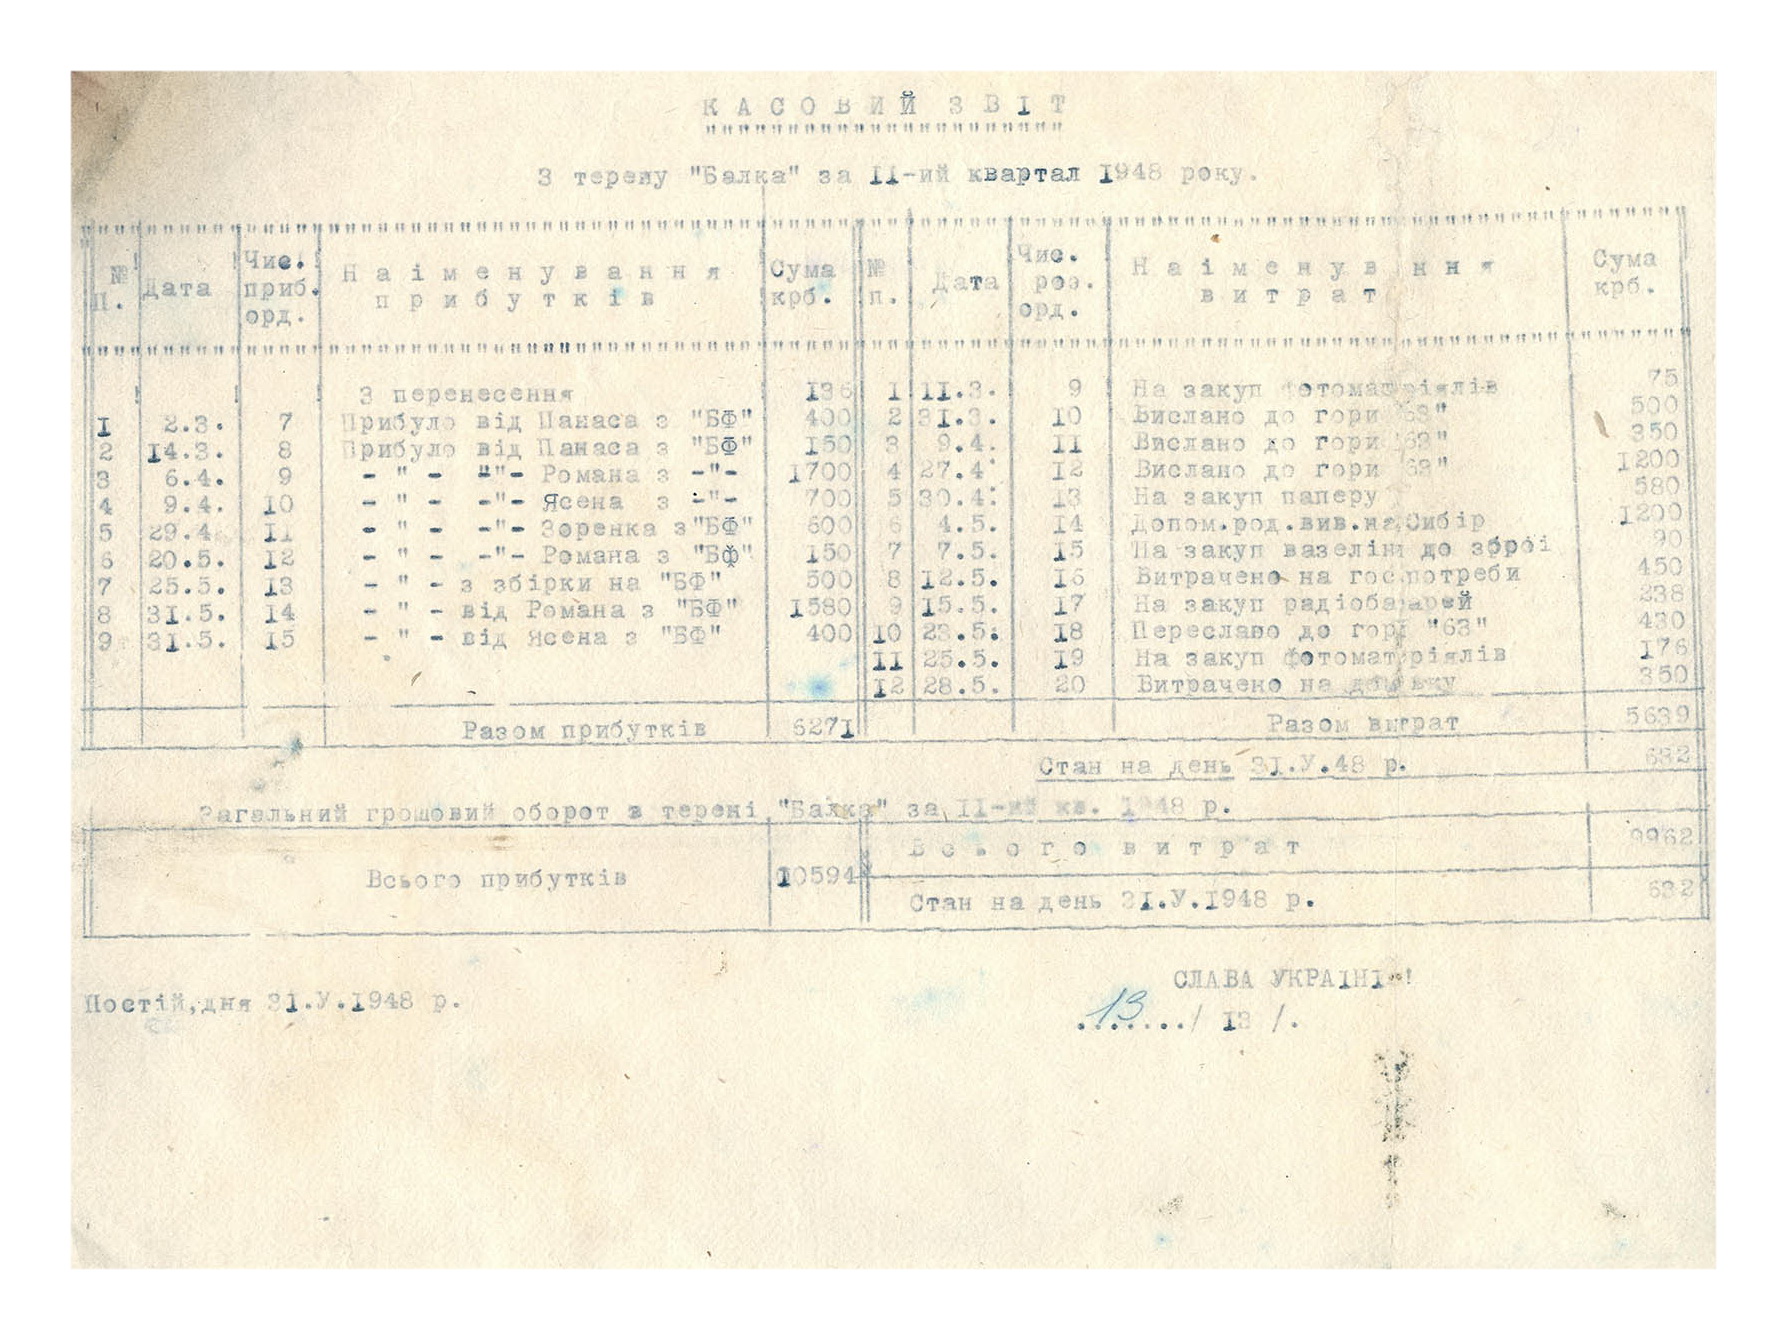 КАСОВИЙ ЗВІТ
З терену "Балка" за ІІ-ий квартал 1948 року.
№ п. Дата Чис. приб. орд. Наіменування прибутків Сума крб. № п. Дата Чис. роз. орд. Наіменування витрат Сума крб.
З перенесення 136 1 11.3. 9 На закуп фотоматеріялів 75
1 2.3. 7 Прибуло від Панаса з "БФ" 400 2 31.3. 10 Вислано до гори "63" 500
2 14.3. 8 Прибуло від Панаса з "БФ" 150 3 9.4. 11 Вислано до гори "63" 350
3 6.4. 9 - " - -"- Романа з -"- 1700 4 27.4. 12 Вислано до гори "63" 1200
4 9.4. 10 - " - -"- Ясена з -"- 700 5 30.4. 13 На закуп паперу 580
5 29.4 11 - " - -"- Зоренка з "БФ" 600 6 4.5. 14 Допом.род.вив.на Сибір 1200
6 20.5. 12 - " - -"- Романа з "БФ" 150 7 7.5. 15 На закуп вазеліни до зброї 90
7 25.5. 13 - " - з збірки на "БФ" 500 8 12.5. 16 Витрачено на гос.потреби 450
8 31.5. 14 - " - від Романа з "БФ" 1580 9 15.5. 17 На закуп радіобатарей 238
9 31.5. 15 - " - від Ясена з "БФ" 400 10 23.5. 18 Переслано до гори "63" 430
11 25.5. 19 На закуп фотоматеріялів 176
12 28.5. 20 Витрачено на 350
Разом прибутків 6271 Разом витрат 5639
Стан на день 31.У.48 р. 632
Загальний грошовий оборот в терені "Балка" за ІІ-ий кв. 1948 р.
Всього прибутків 10594 Всього витрат 9962
Стан на день 31.У.1948 р. 632
СЛАВА УКРАІНІ !
Постій,дня 31.У.1948 р.
13
......./ 13 /.